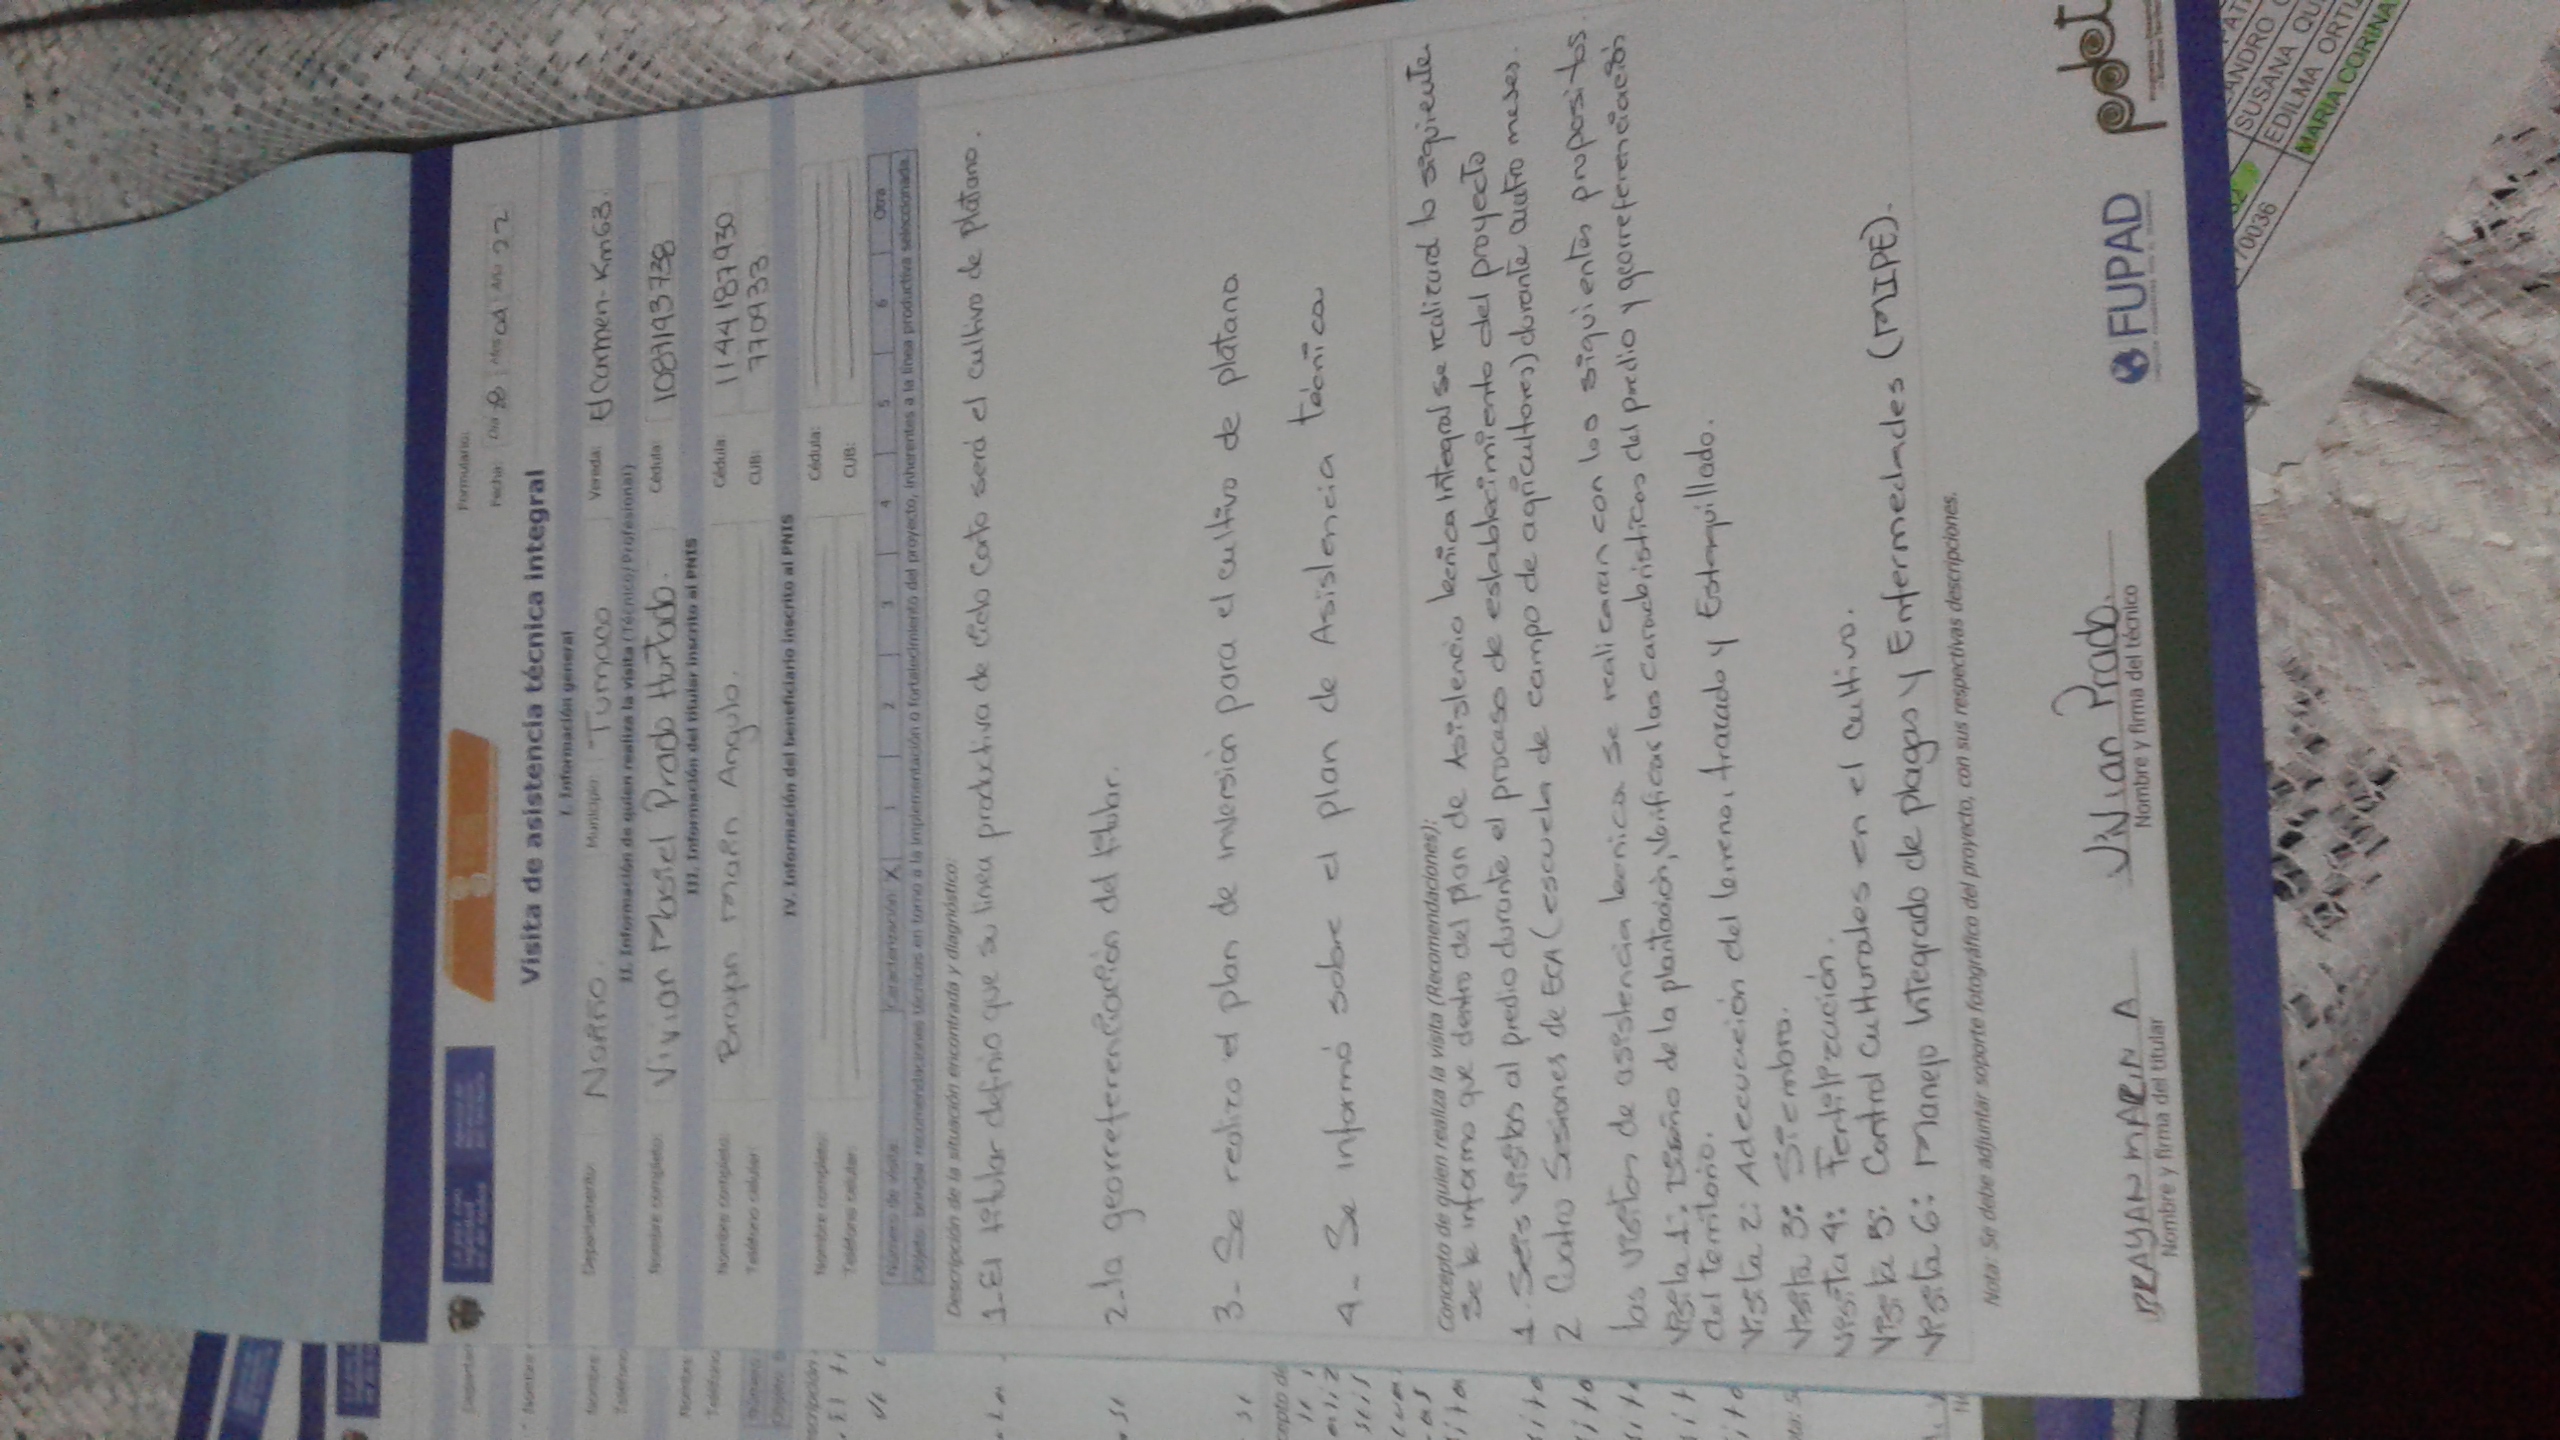 Formulario:
Fecha: Día 8 Mes 09 Año 22
Visita de asistencia técnica integral
I. Información general
Departamento: Nariño. Municipio: Tumaco Vereda: El Carmen - Km63.
II. Información de quien realiza la visita (Técnico/Profesional)
Nombre completo: Vivian Masiel Prado Hurtado. Cédula: 1087193738
III. Información del titular inscrito al PNIS
Nombre completo: Brayan Marín Angulo. Cédula: 1144187930
Teléfono celular: CUB: 770933
IV. Información del beneficiario inscrito al PNIS
Nombre completo: Cédula:
Teléfono celular: CUB:
Número de visita: Caracterización X 1 2 3 4 5 6 Otra
Objeto: brindar recomendaciones técnicas en torno a la implementación o fortalecimiento del proyecto, inherentes a la línea productiva seleccionada.
Descripción de la situación encontrada y diagnóstico:
1-El titular definio que su linea productiva de ciclo corto será el cultivo de platano.
2-la georreferenciación del titular.
3- Se realizo el plan de inversion para el cultivo de platano
4- Se informó sobre el plan de Asistencia técnica
Concepto de quien realiza la visita (Recomendaciones):
Se le informo que dentro del plan de Asistencia tecnica integral se realizard lo siguiente
1. Seis visitas al predio durante el proceso de establecimiento del proyecto
2 Cuatro Sesiones de ECA (escuela de campo de agricultores) durante cuatro meses.
las visitas de asistencia tecnica se realizaran con los siguientes propositos.
Visita 1: Diseño de la plantación, Verificar las caracteristicas del predio y georreferenciación
del territorio.
Visita 2: Adecuación del terreno, trazado y Estaquillado.
Visita 3: Siembra.
Visita 4: Fertilización.
Visita 5: Control Culturales en el cultivo.
Visita 6: Manejo Integrado de plagas y Enfermedades (MIPE).
Nota: Se debe adjuntar soporte fotográfico del proyecto, con sus respectivas descripciones.
BRAYAN MARIN A Vivian Prado.
Nombre y firma del titular Nombre y firma del técnico
FUPAD
pdet
70036
SUSANA QU
EDILMA ORTI
MARIA CORINA